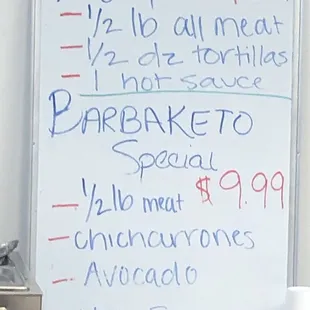 - 1/2 lb all meat
- 1/2 dz tortillas
- 1 hot sauce
BARBAKETO
Special
- 1/2 lb meat $9.99
- chicharrones
- Avocado